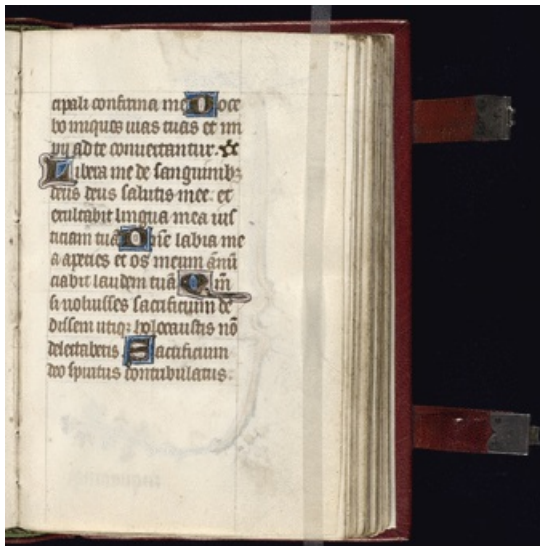 cipali confirma me Doce
bo iniquos uias tuas et im
pii ad te conuertantur.
Libera me de sanguinibꝫ
deus deus salutis mee. et
exultabit lingua mea ius
ticiam tuā Dñe labia me
a aperies et os meum ānū
ciabit laudem tuā Qm̄
si uoluisses sacrificium de
dissem utiqꝫ holocaustis nō
delectaberis Sacrificium
deo spiritus contribulatus.